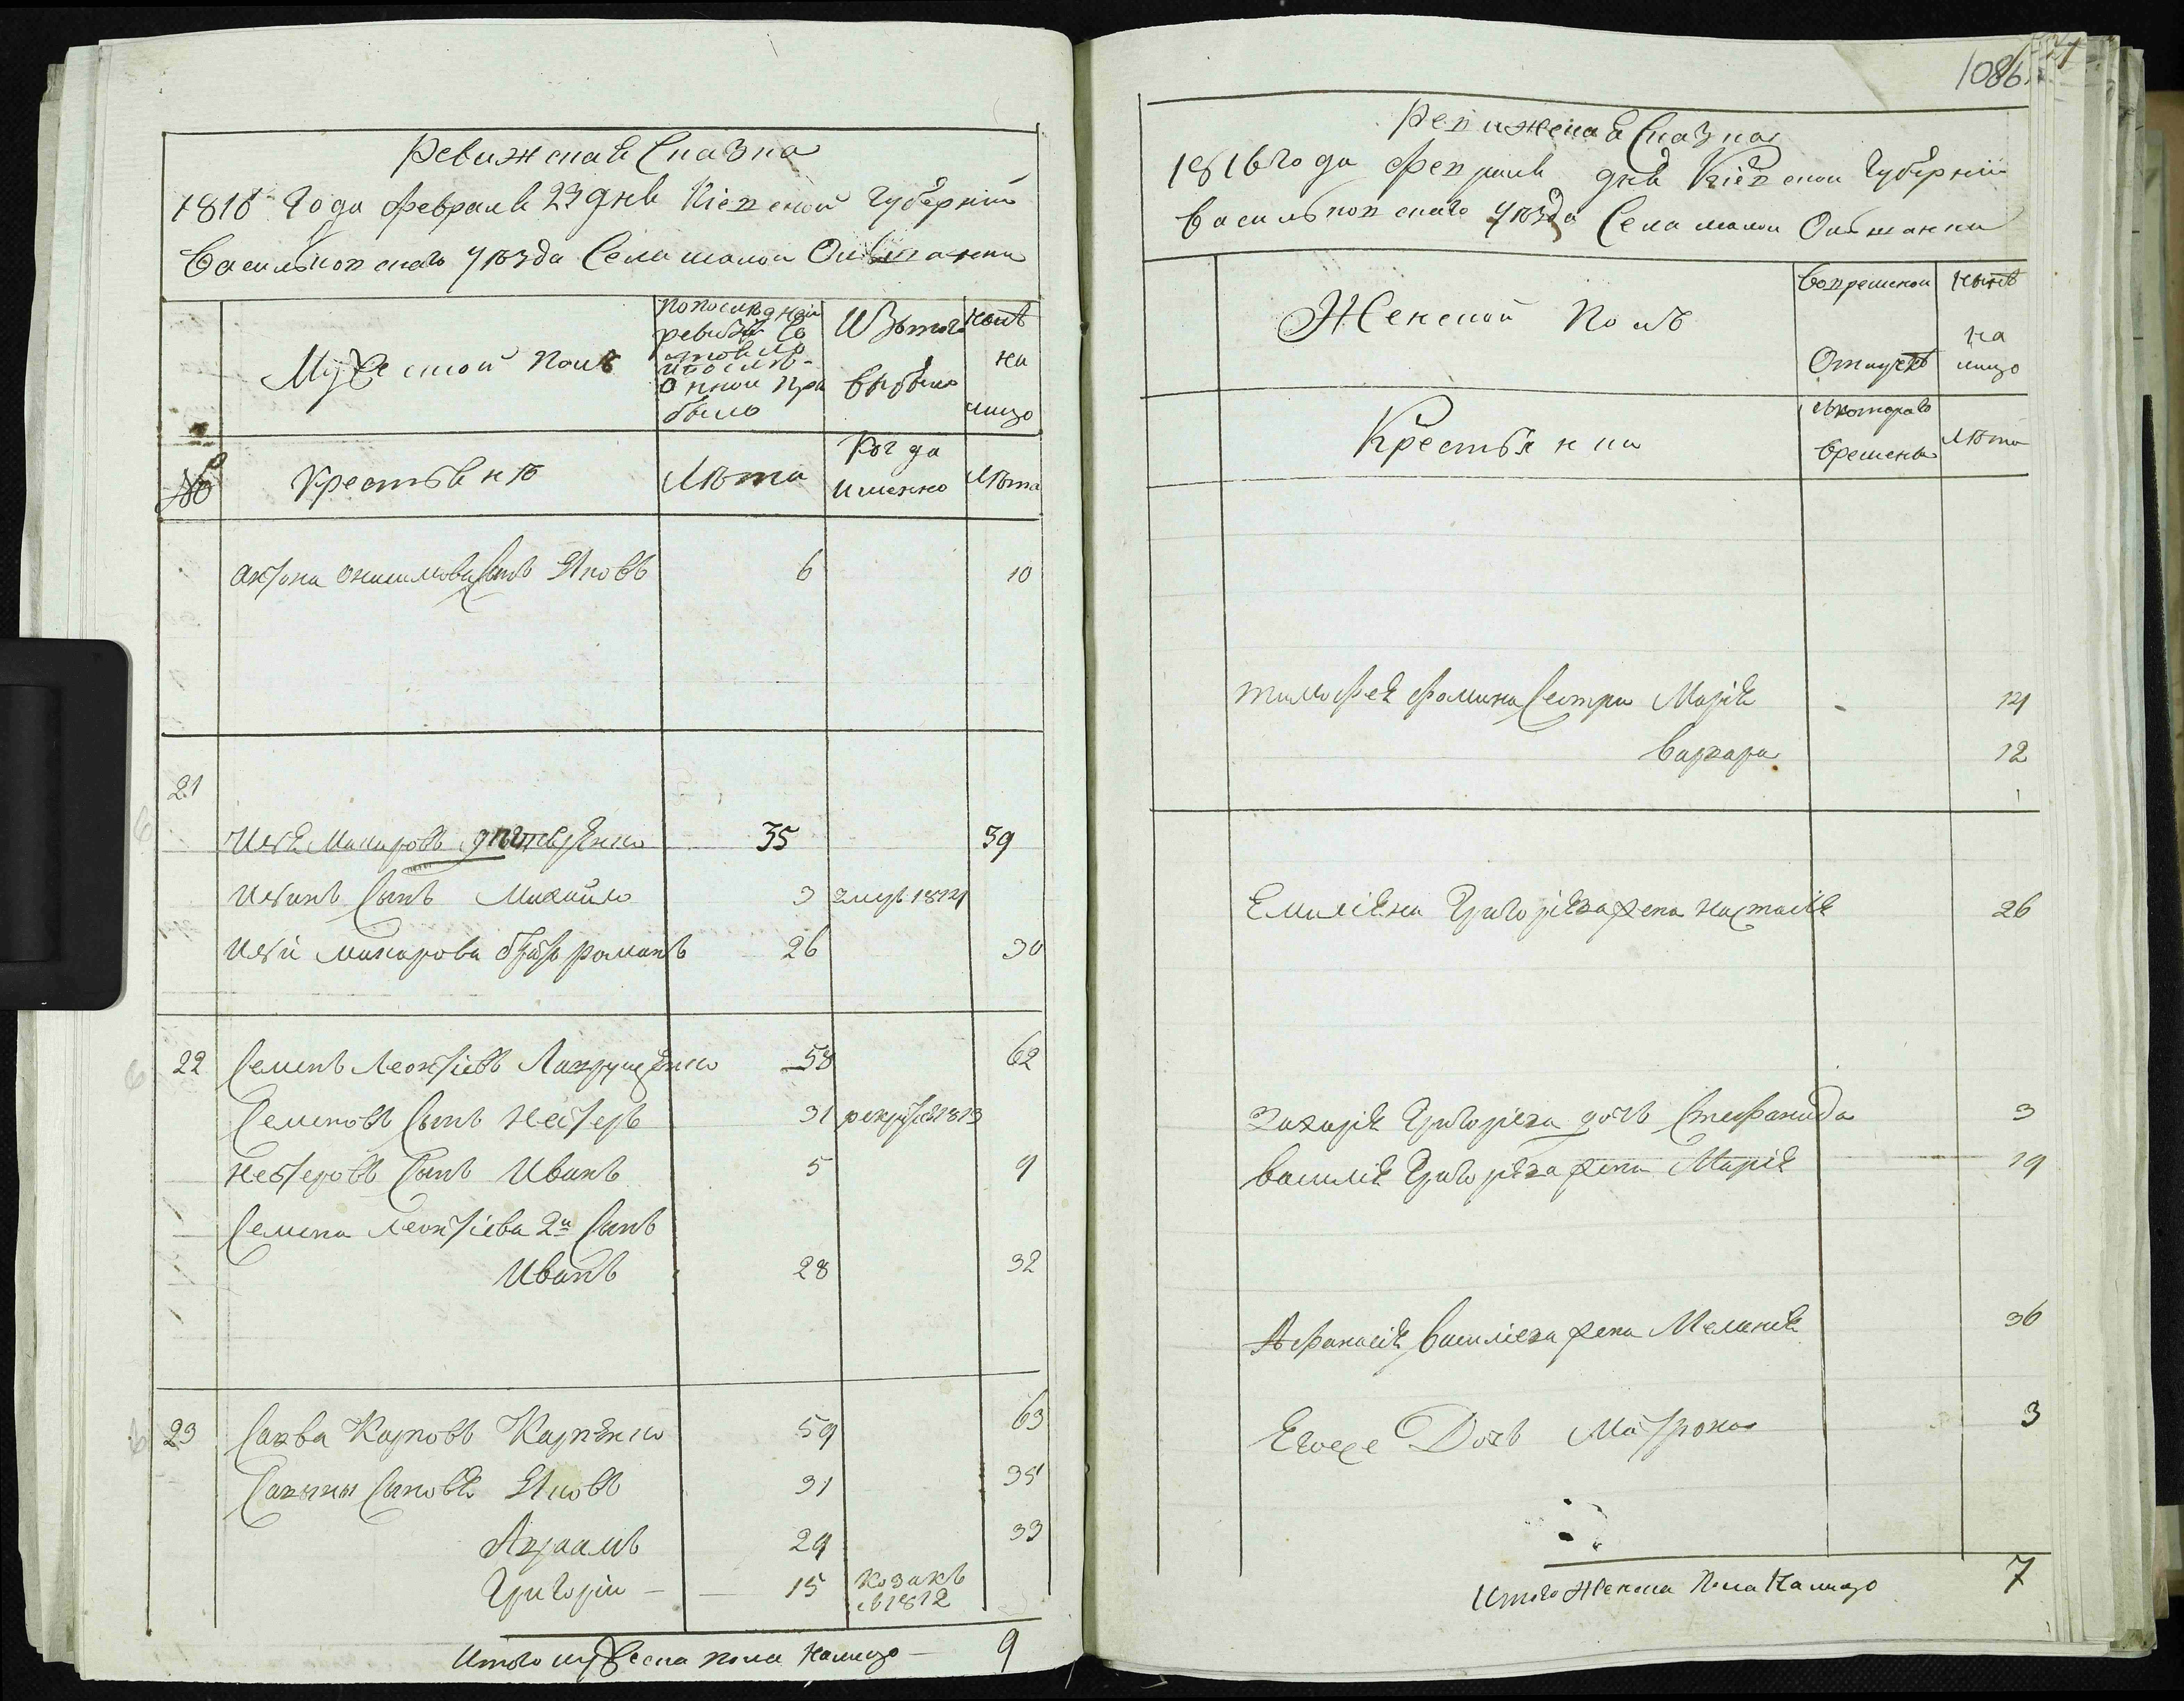 Ревижская Сказка
1816 Года Февраля 23 дня Кіевской Губерніи
Васильковскаго уѣзда Села малой
Мужеской полъ
по последней ревизіи со
стояло и после
оной при
было
Изъ того
выбыло
ныне
на
лицо
№
Крестьяне
Лѣта
Когда
именно
Лѣта
Антона Онисимова Сынъ Яковъ 6 10
21
Илья Макаровъ 35 39
Ильинъ Сынъ Михайло 3 умръ 1814
Ильи Макарова братъ романъ 26 30
22 Семенъ Леонтіевъ Лавруценко 58 62
Семеновъ Сынъ Нестеръ 31 рекрутъ 1813
Нестеровъ Сынъ Иванъ 5 9
Семена Леонтіева 2й Сынъ
Иванъ 28 32
23 Савва Карповъ Карпенко 59 63
Саввины Сыновья Яковъ 31 35
Авраамъ 29 33
Григорій - 15 козакъ
въ 1812
Итого мужеска пола налицо - 9
1086
Ревижская Сказка
1816 года Февраля дня Кіевской Губерніи
Васильковскаго уѣзда Села малой
Женской полъ
Во временной
Отлучке
ныне
на
лицо
Крестьянки
съ котораго
времени
Лѣта
тимофея Фомина Сестры Марія - 14
Варвара 12
Емиліяна Григоріева жена Насталія 26
Захарія Григоріева дочь Стефанида 3
Василія Григоріева жена Марія 19
Афанасія Василіева жена Меланія 36
Евоеже Дочь Матрона 3
Итого Женска пола Налицо 7